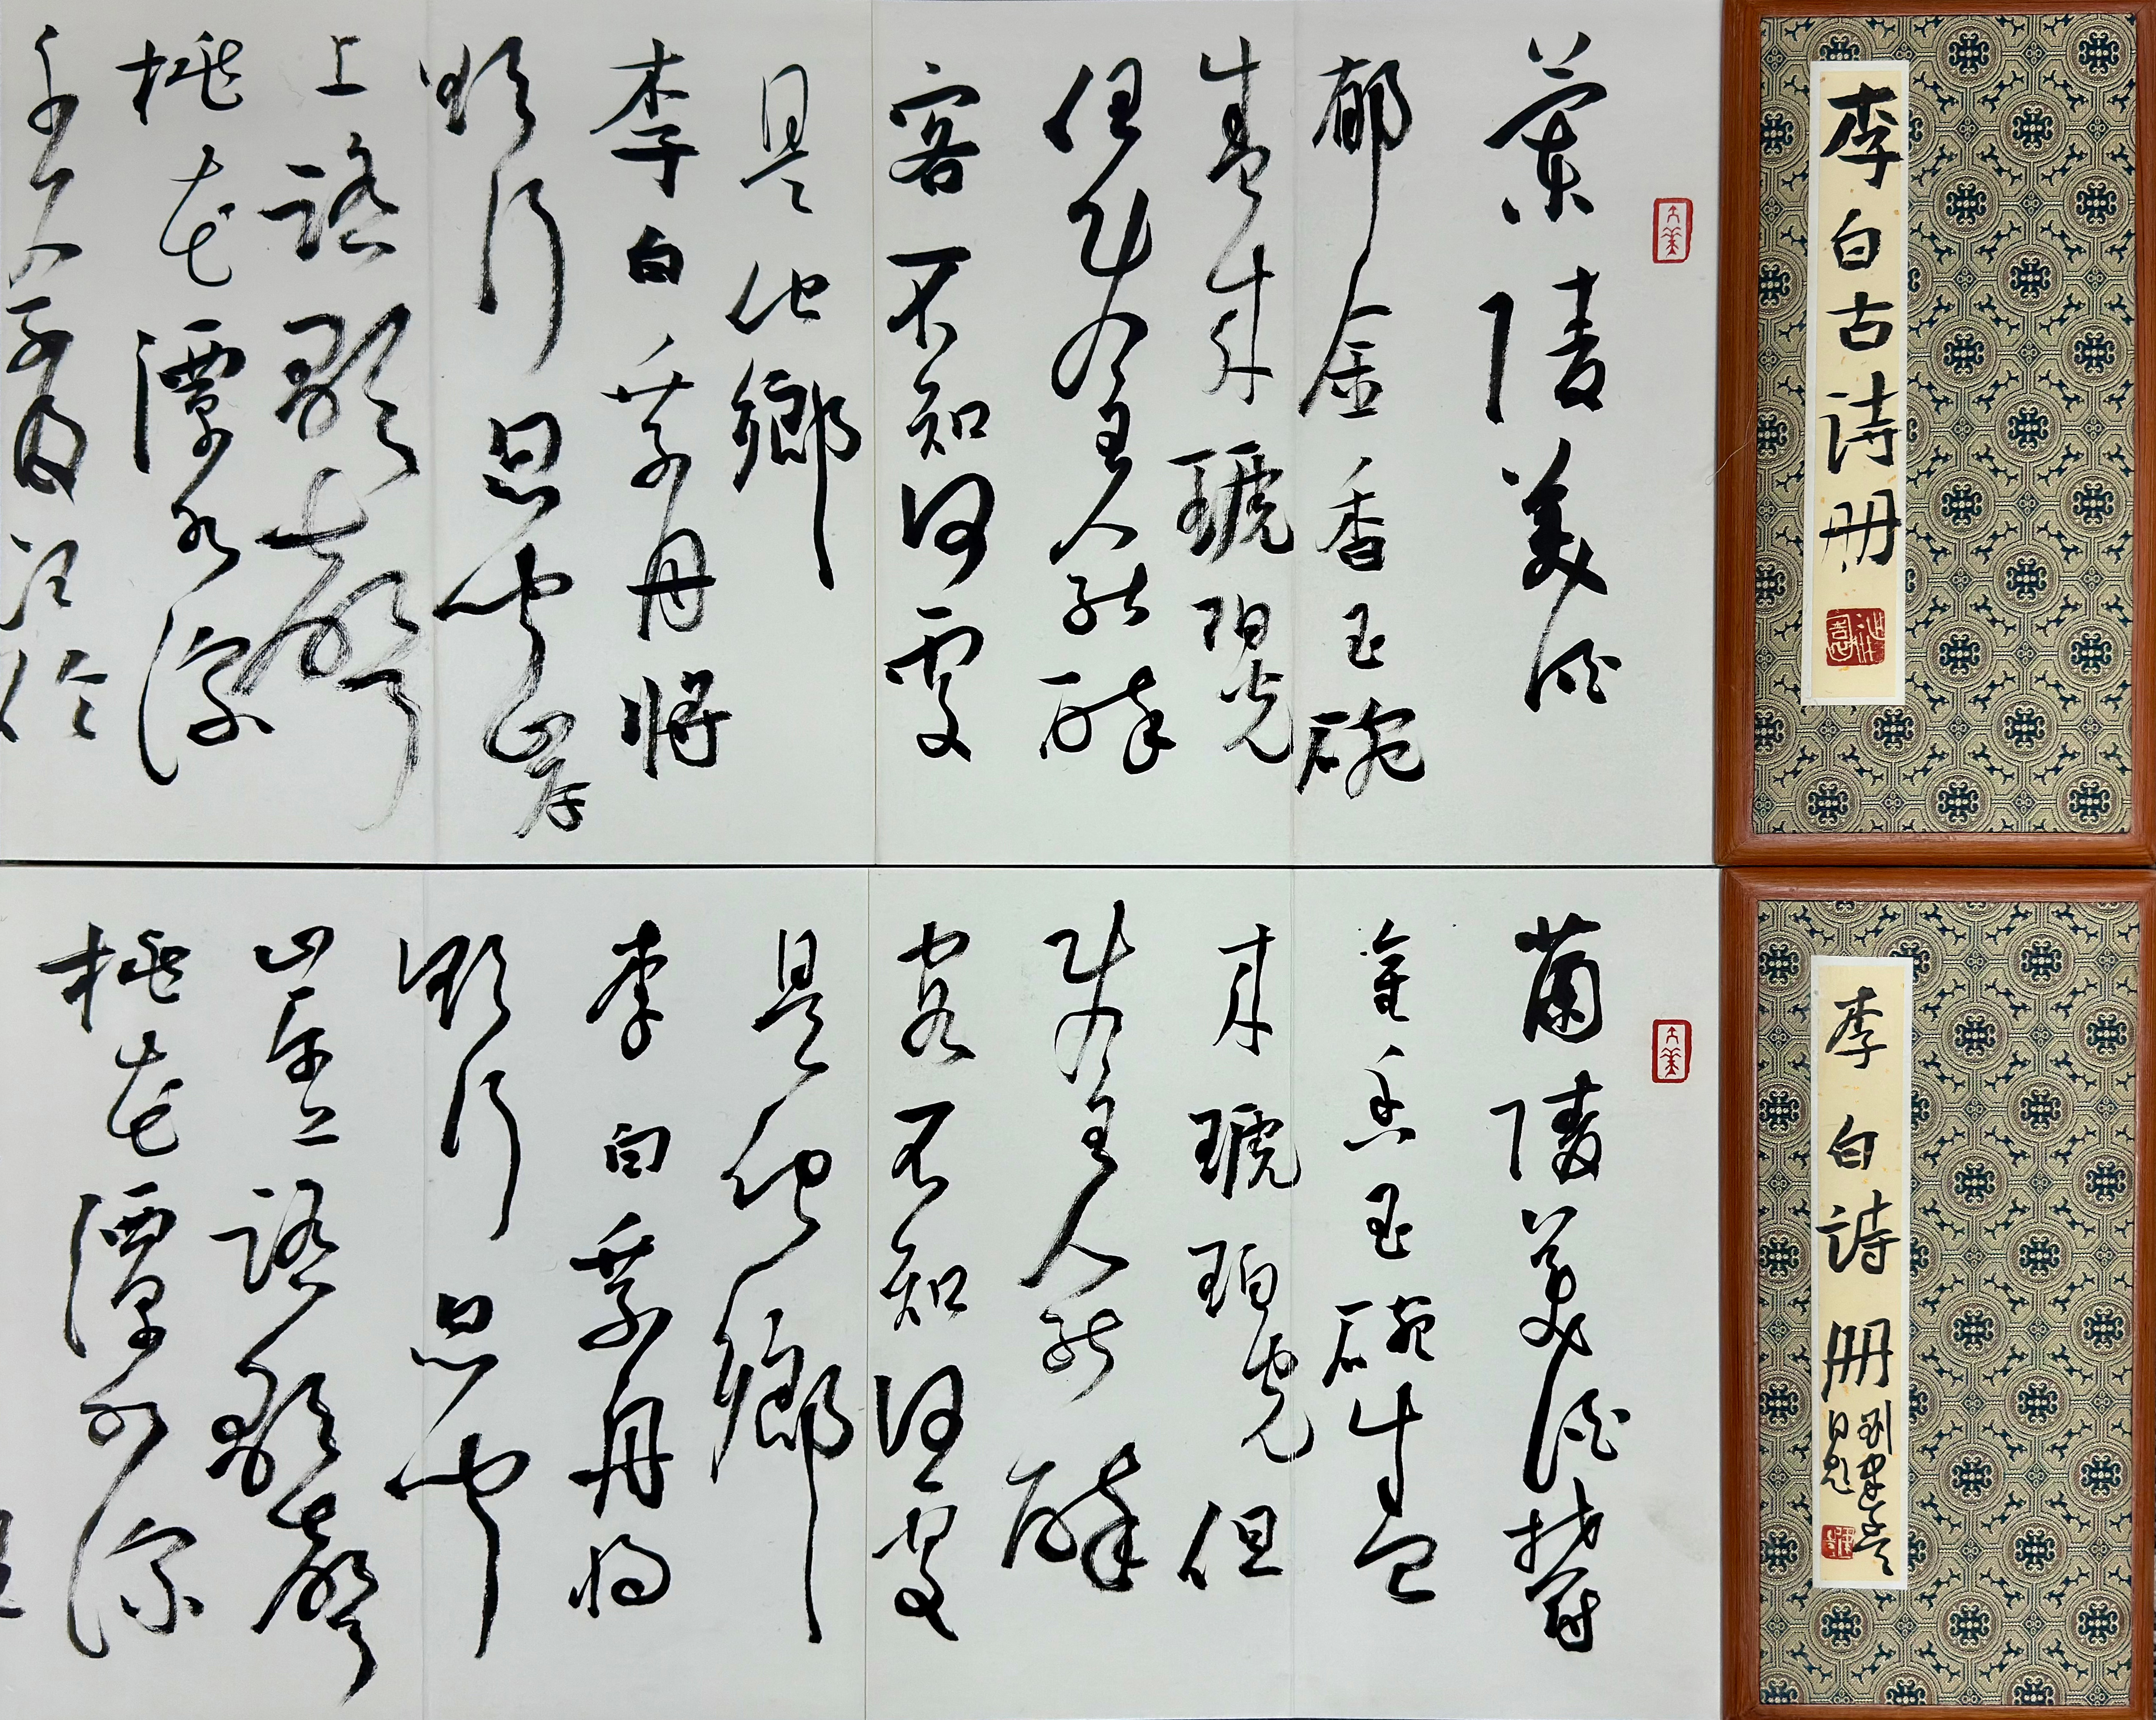 李白古诗册
蘭陵美酒
郁金香玉碗
盛來琥珀光
但使主人能醉
客不知何處
是他鄉
李白乘舟將
欲行忽聞岸
上踏歌聲
桃花潭水深
千尺不及汪倫
李白詩册
蘭陵美酒鬱
金香玉碗盛
來琥珀光但
使主人能醉
客不知何處
是他鄉
李白乘舟將
欲行忽聞
岸上踏歌聲
桃花潭水深